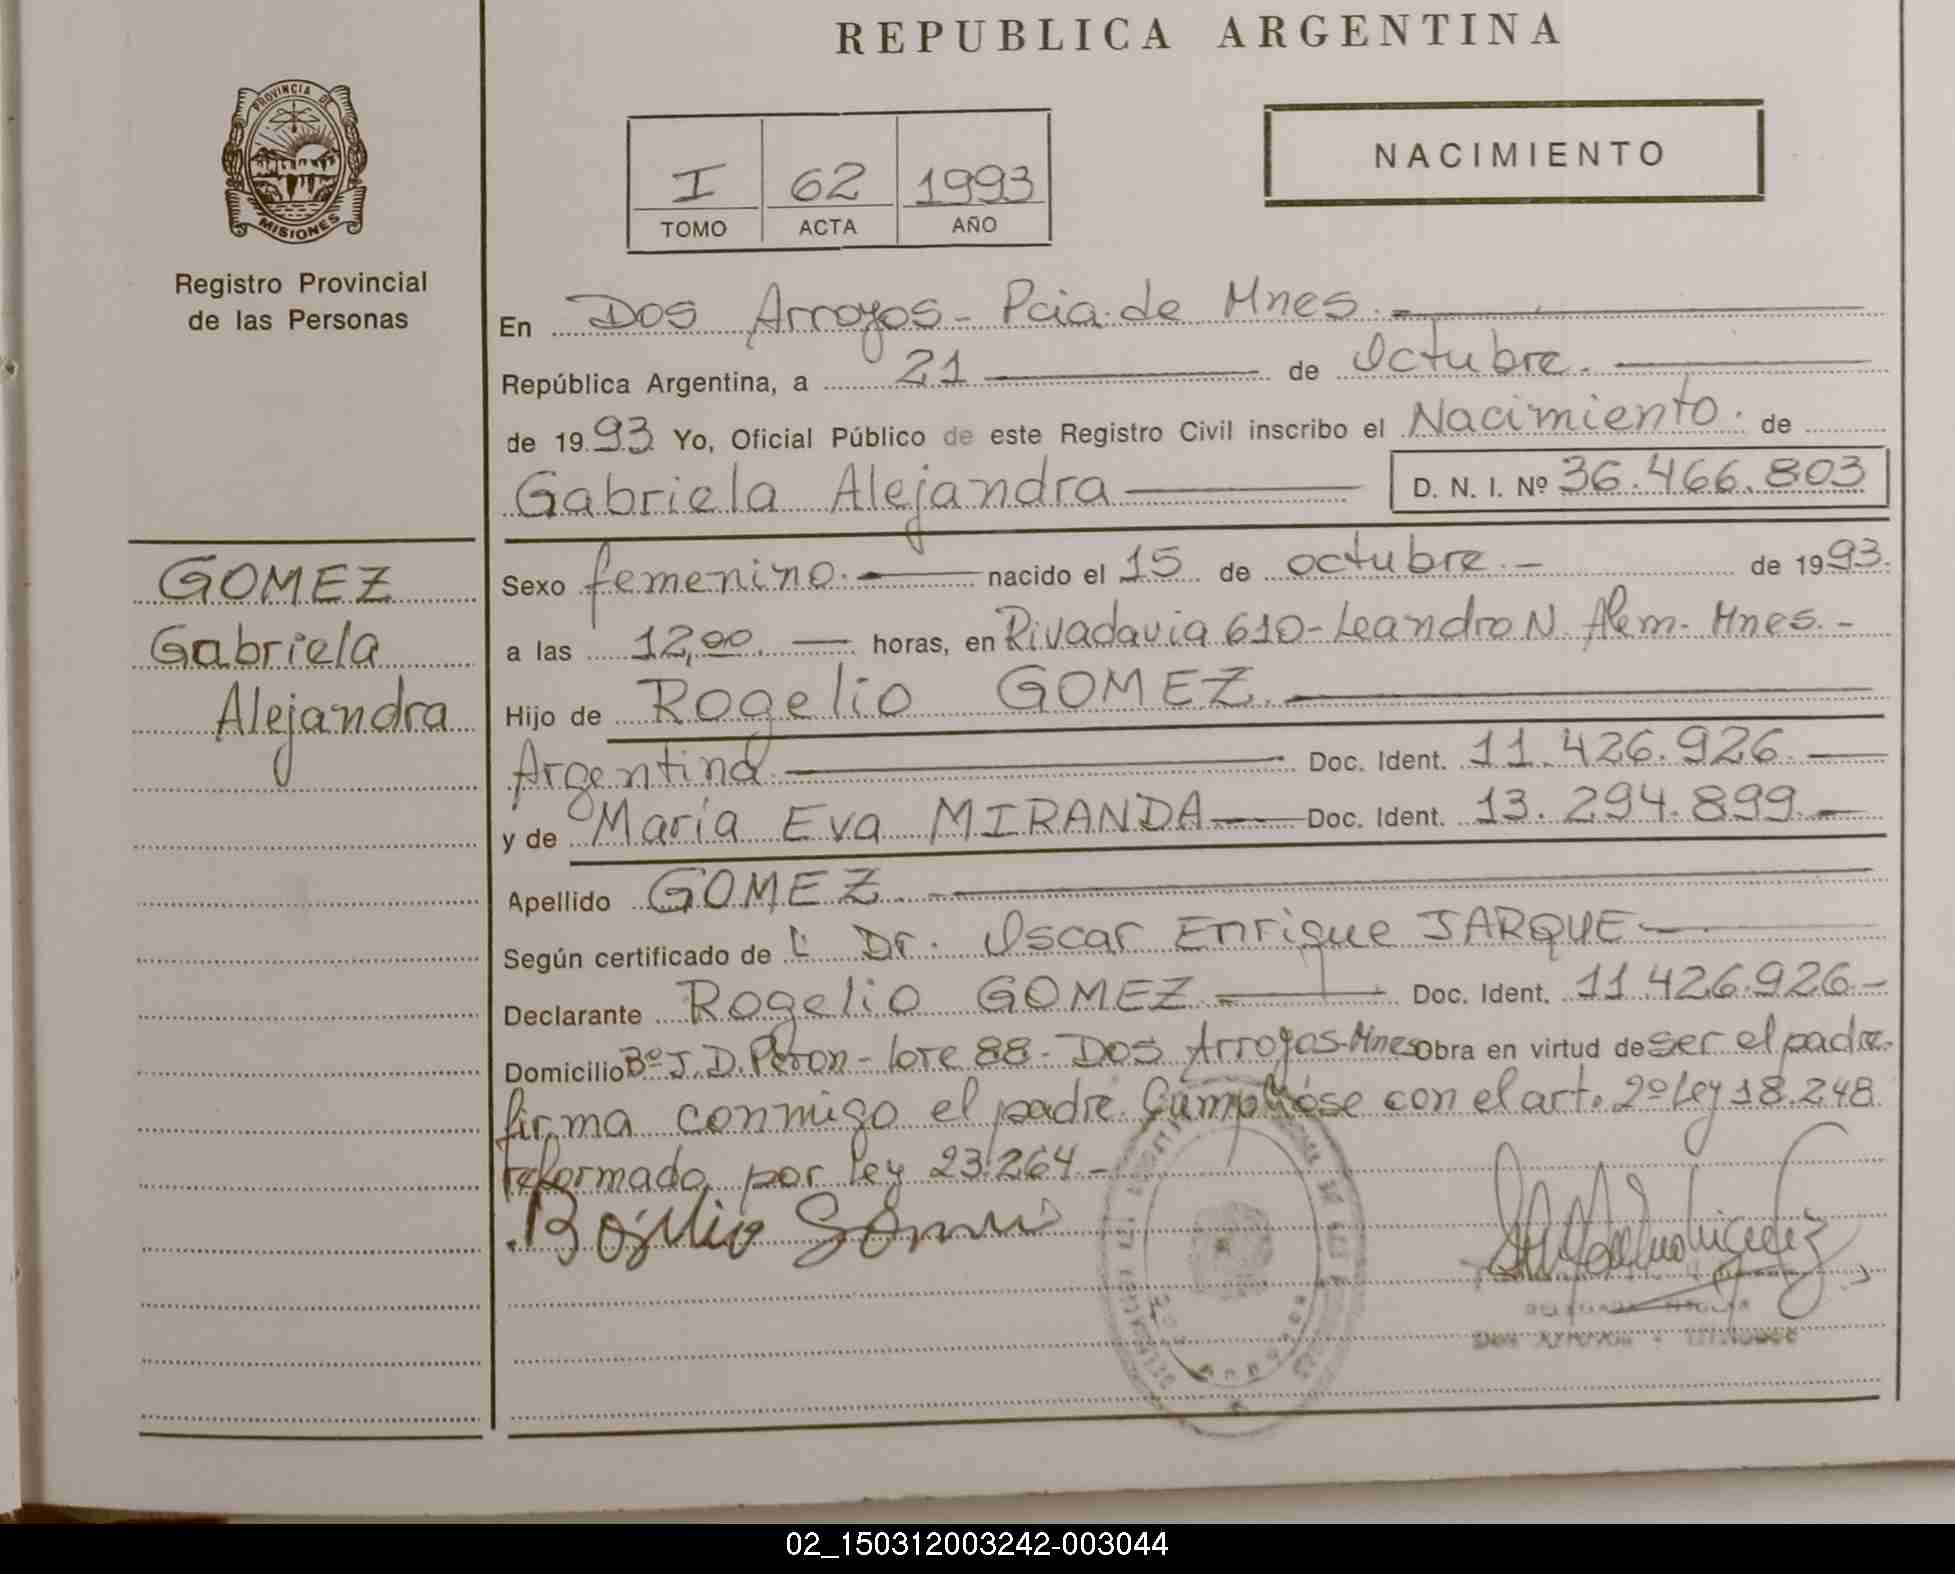 REPUBLICA ARGENTINA
PROVINCIA DE
MISIONES
Registro Provincial
de las Personas
I 62 1993
TOMO ACTA AÑO
NACIMIENTO
En Dos Arroyos - Pcia. de Mnes.
República Argentina, a 21 de Octubre.
de 1993 Yo, Oficial Público de este Registro Civil inscribo el Nacimiento. de
Gabriela Alejandra D. N. I. Nº 36.466.803
GOMEZ
Gabriela
Alejandra
Sexo femenino. nacido el 15 de octubre. - de 1993.
a las 12,00. horas, en Rivadavia 610 - Leandro N. Alem. Mnes. -
Hijo de Rogelio GOMEZ.
Argentina. Doc. Ident. 11.426.926.
y de María Eva MIRANDA Doc. Ident. 13.294.899. -
Apellido GOMEZ.
Según certificado de Dr. Oscar Enrique JARQUE
Declarante Rogelio GOMEZ Doc. Ident. 11.426.926 -
Domicilio Bº J. D. Peron - lote 88 - Dos Arroyos - Mnes Obra en virtud de ser el padre.
firma conmigo el padre. Cumplióse con el art. 2º Ley 18.248
reformado por ley 23.264 -
02_150312003242-003044